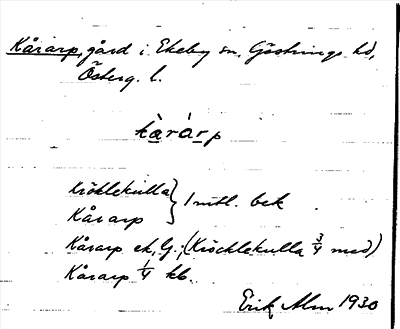 Kårarp, gård i Ekeby sn, Göstrings hd,
Österg. l.
kàrár̀p
Kröklekulla }
Kårarp } 1 mtl. bek
Kårarp ek, G; (Kröcklekulla 3/4 med)
Kårarp 1/4 kb.
Erik Alm 1930